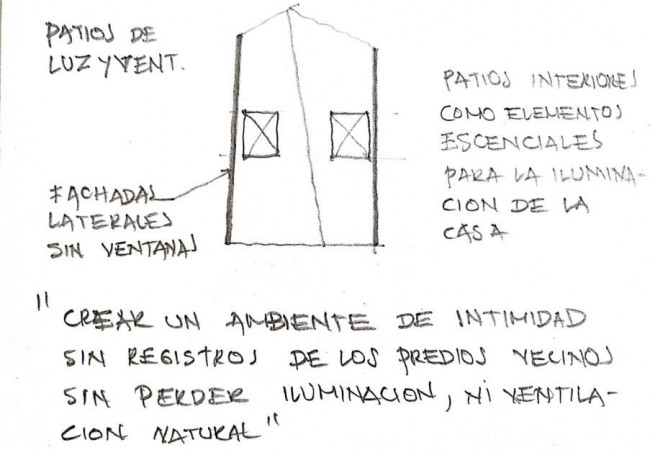 PATIOS DE
LUZ Y VENT.
PATIOS INTERIORES
COMO ELEMENTOS
ESCENCIALES
PARA LA ILUMINA-
CION DE LA
CASA
FACHADAS
LATERALES
SIN VENTANAS
"CREAR UN AMBIENTE DE INTIMIDAD
SIN REGISTROS DE LOS PREDIOS VECINOS
SIN PERDER ILUMINACION, NI VENTILA-
CION NATURAL"